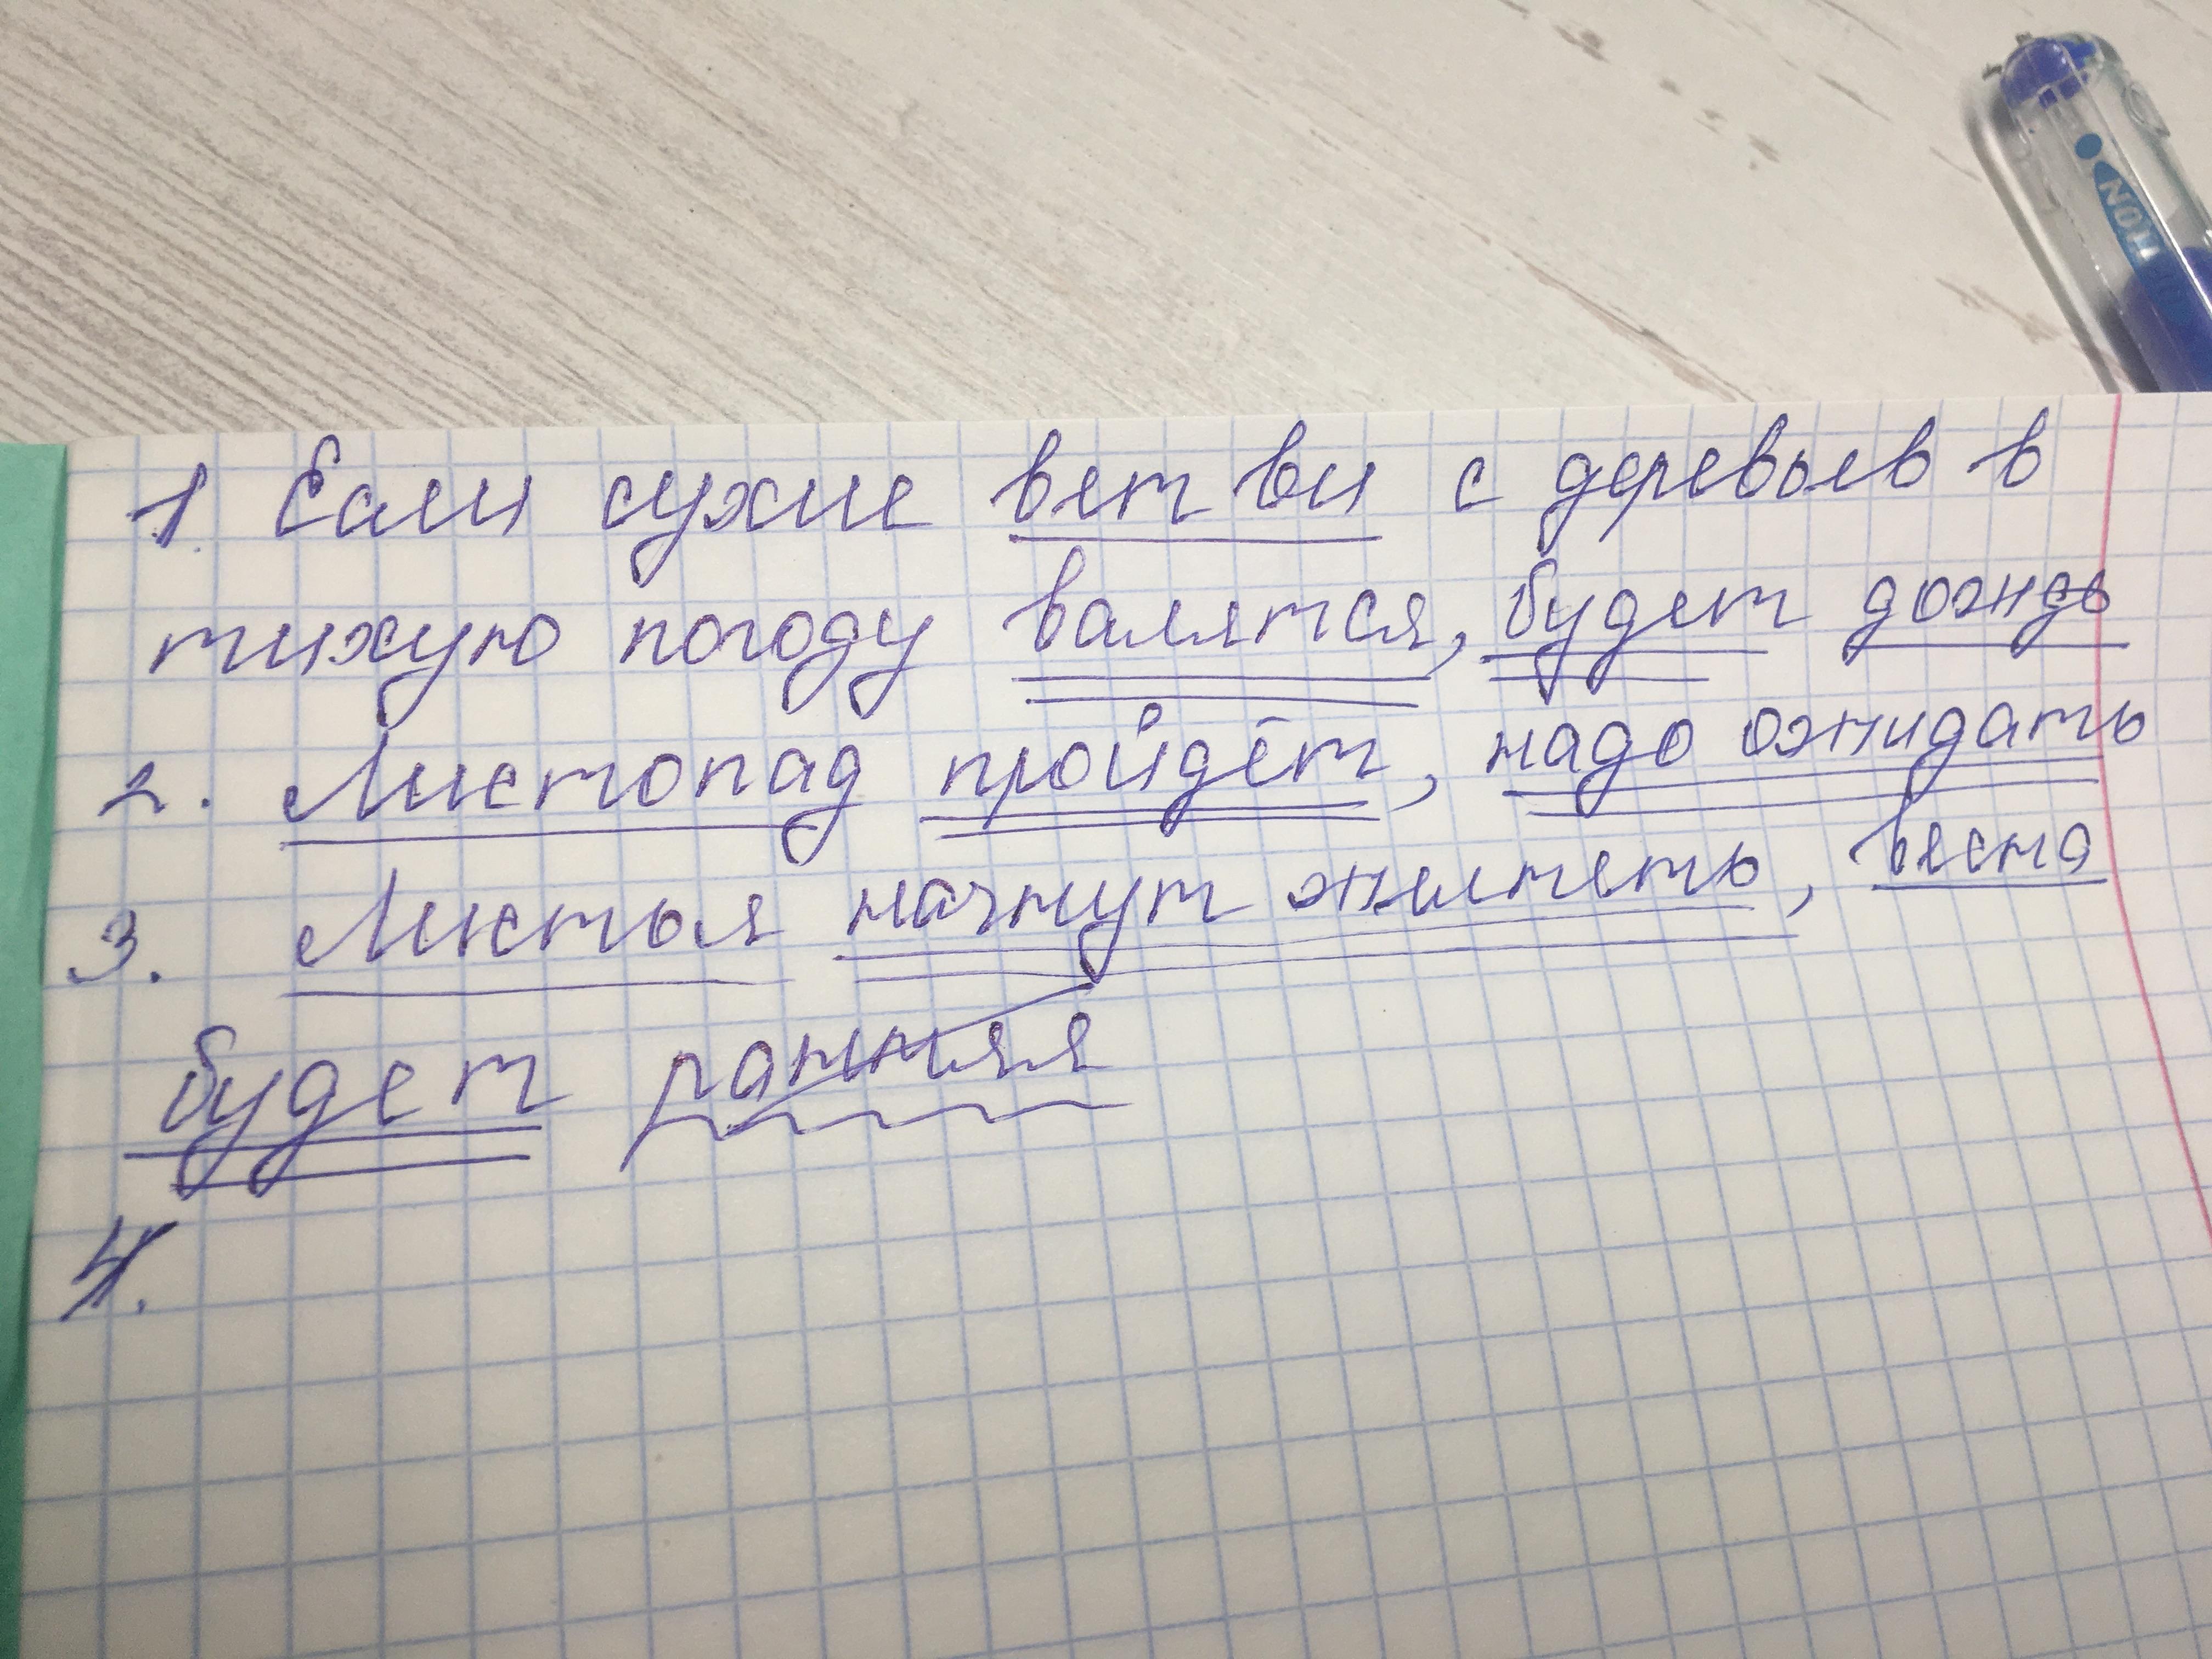 1. Если сухие ветви с деревьев в
тихую погоду валятся, будет дождь
2. Листопад пройдёт, надо ожидать
3. Листья начнут желтеть, весна
будет ранняя
4.